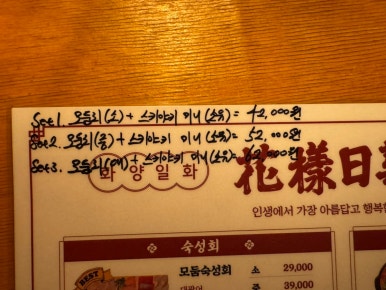 Set 1. 모둠회(소) + 스키야키 미니(소유) = 42,000원
Set 2. 모둠회(중) + 스키야키 미니(소유) = 52,000원
Set 3. 모둠회(대) + 스키야키 미니(소유) = 62,000원
화양일화
花樣日
인생에서 가장 아름답고 행복한
숙성회
BEST
모둠숙성회 소 29,000
대광어 중 39,000